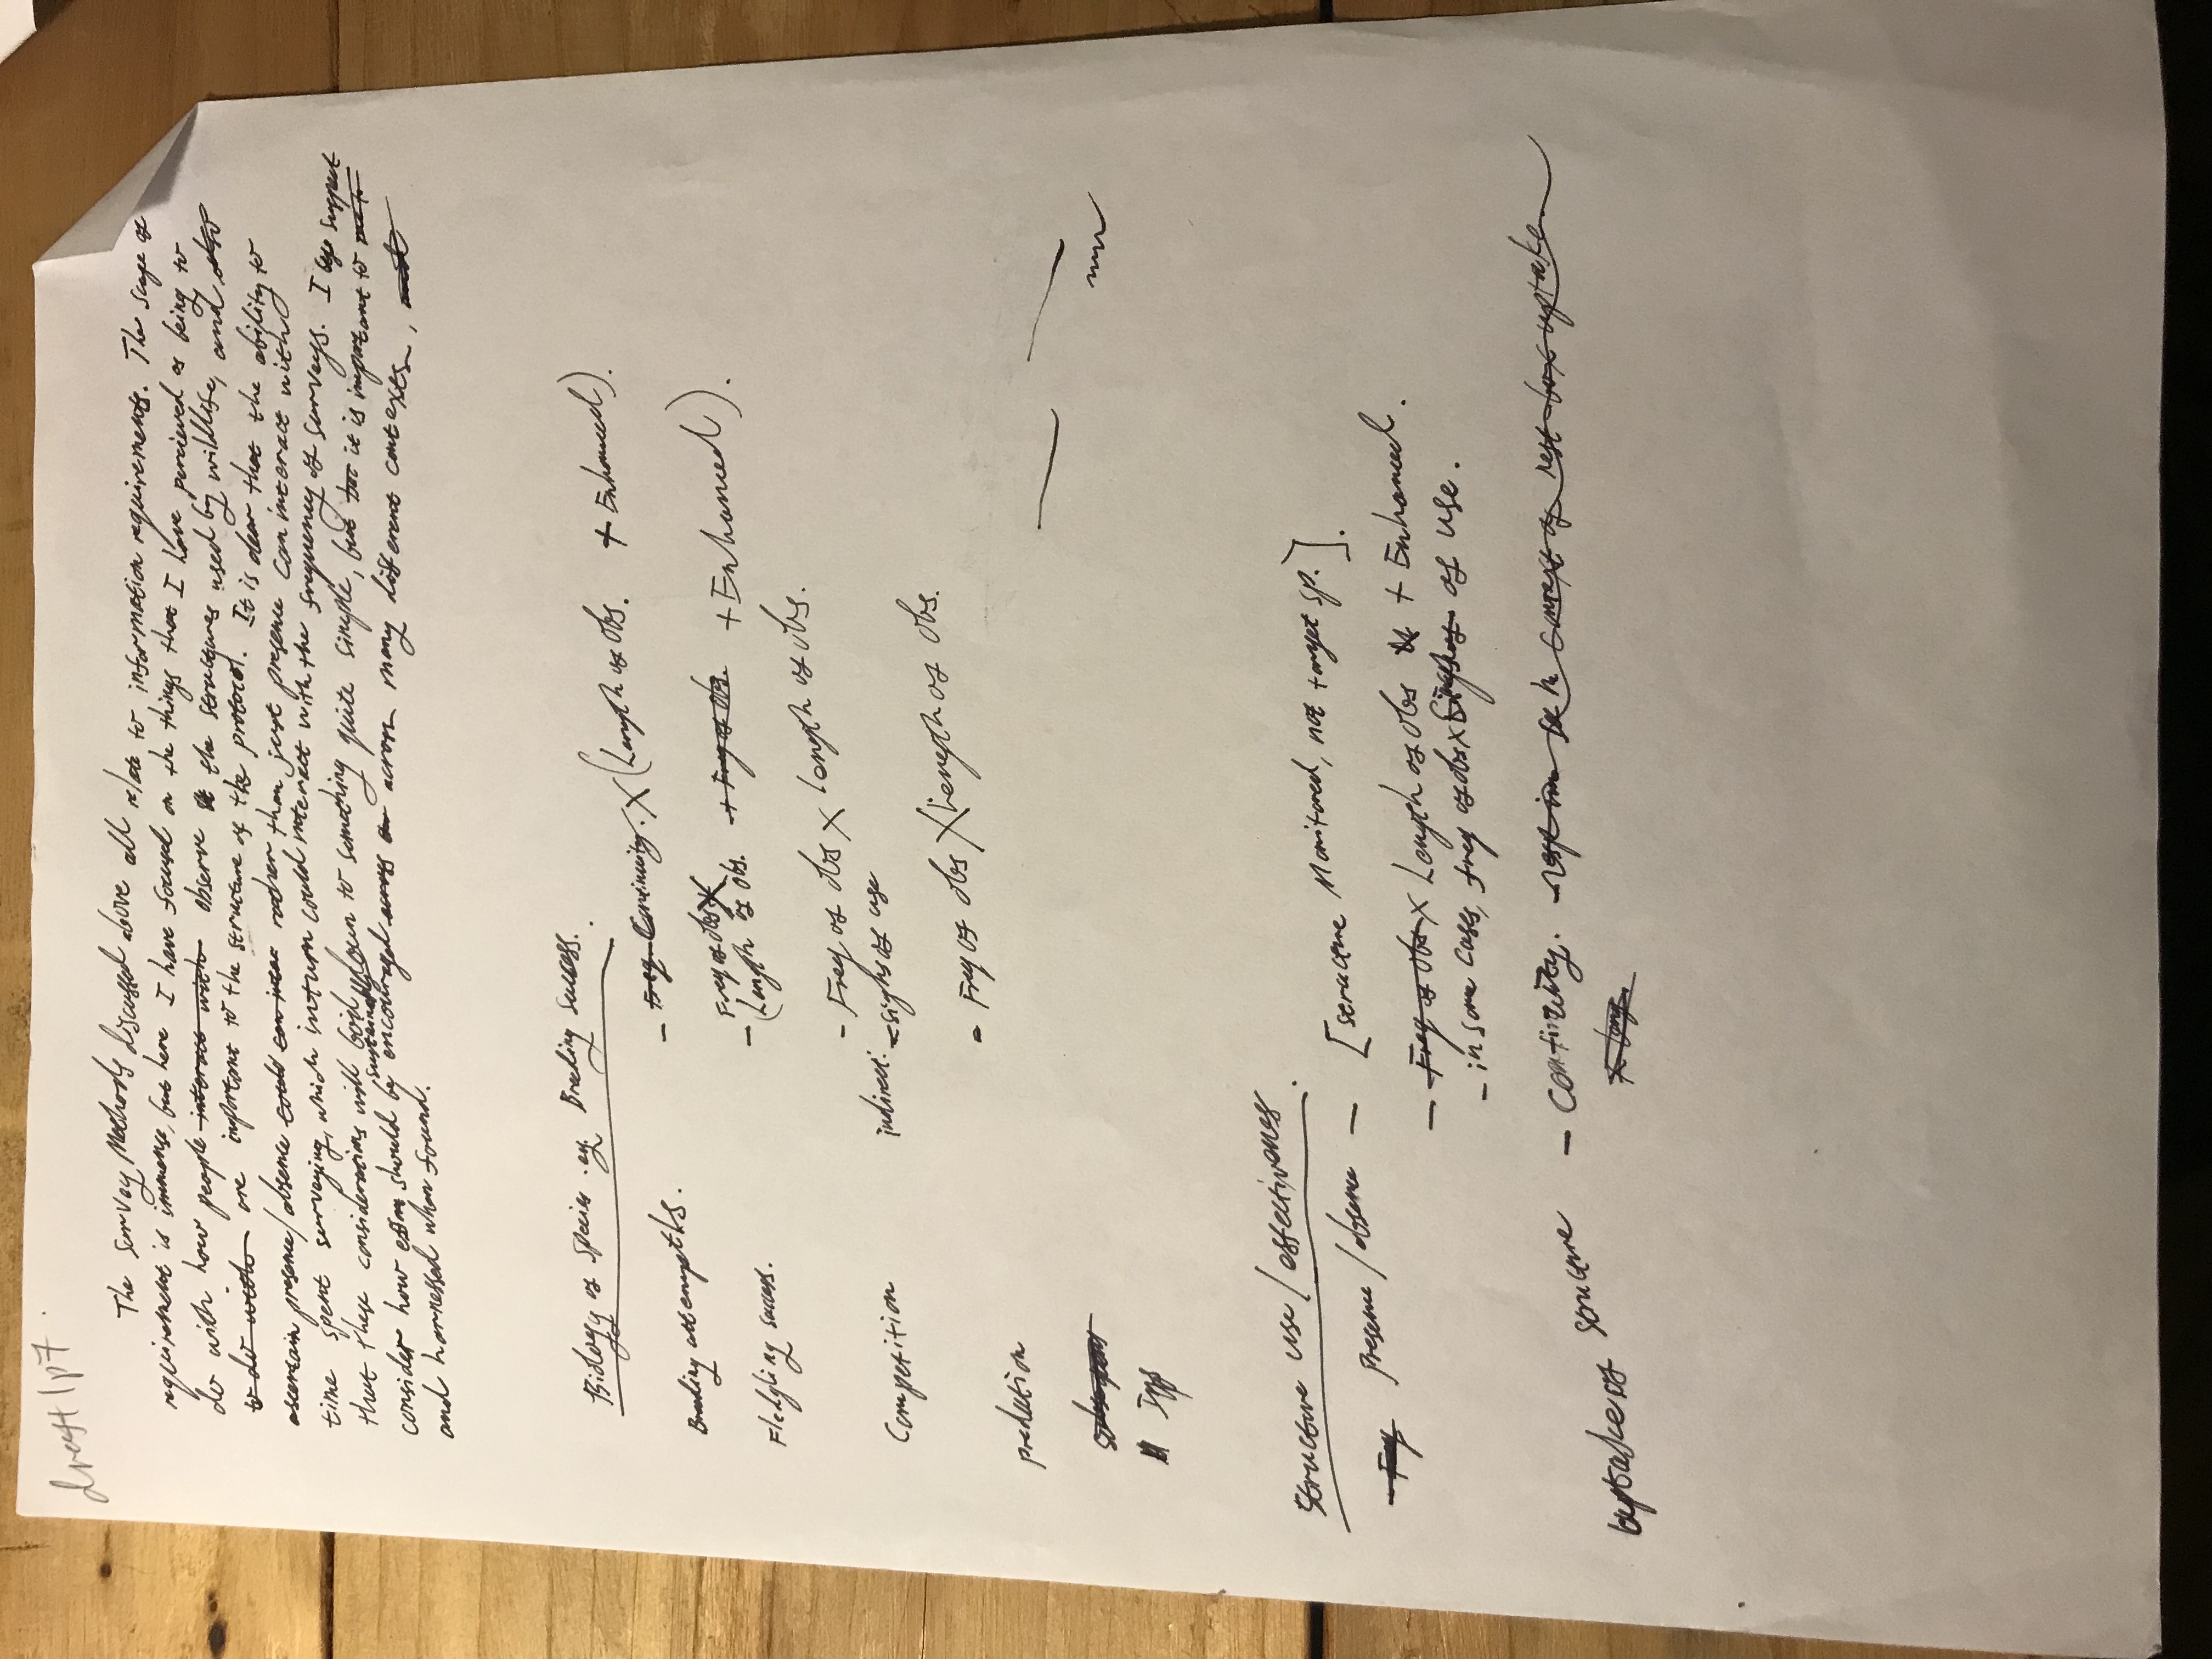 draft 1 p7
The Survey Methods discussed above all relate to information requirements. The scope of
requirement is immense, but here I have focused on the things that I have percieved as being to
do with how people interact with observe the structures used by wildlife, and also
to do with are important to the structure of the protocol. It is clear that the ability to
ascertain presence/absence could can rather than just presence can interact with
time spent surveying, which inturn could interact with the frequency of surveys. I suspect
that these considerations will boil down to something quite simple, but it is important to
sustainably
consider how effort should be encouraged across across many different contexts, and
and harnessed when found.
Biology of Species .eg. Breeding Success.
Breeding attempts. - Freq. Continuity. X (Length of Obs. + Enhanced).
Freq of obs X
Fledgling success. - (Length of Obs. + Freq of Obs. + Enhanced).
- Freq of obs X length of obs.
Competition indirect: - signs of use
- Freq of obs X Length of obs.
predation
Structure use / effectiveness.
- Freq Presence / absence - [structure Monitored, not target sp.].
- Freq of Obs X Length of obs + Enhanced.
- in some cases, freq of obs X Signs of of use.
uptake of structure - Continuity. context of nest-box uptake.